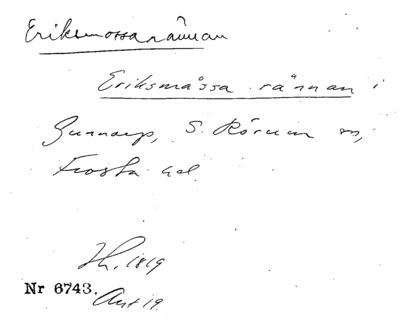 Eriksmossarännan
Eriksmåssa rännan i
Gunnarp, S. Rörum sn,
Frosta hd.
1819
Nr 6743.